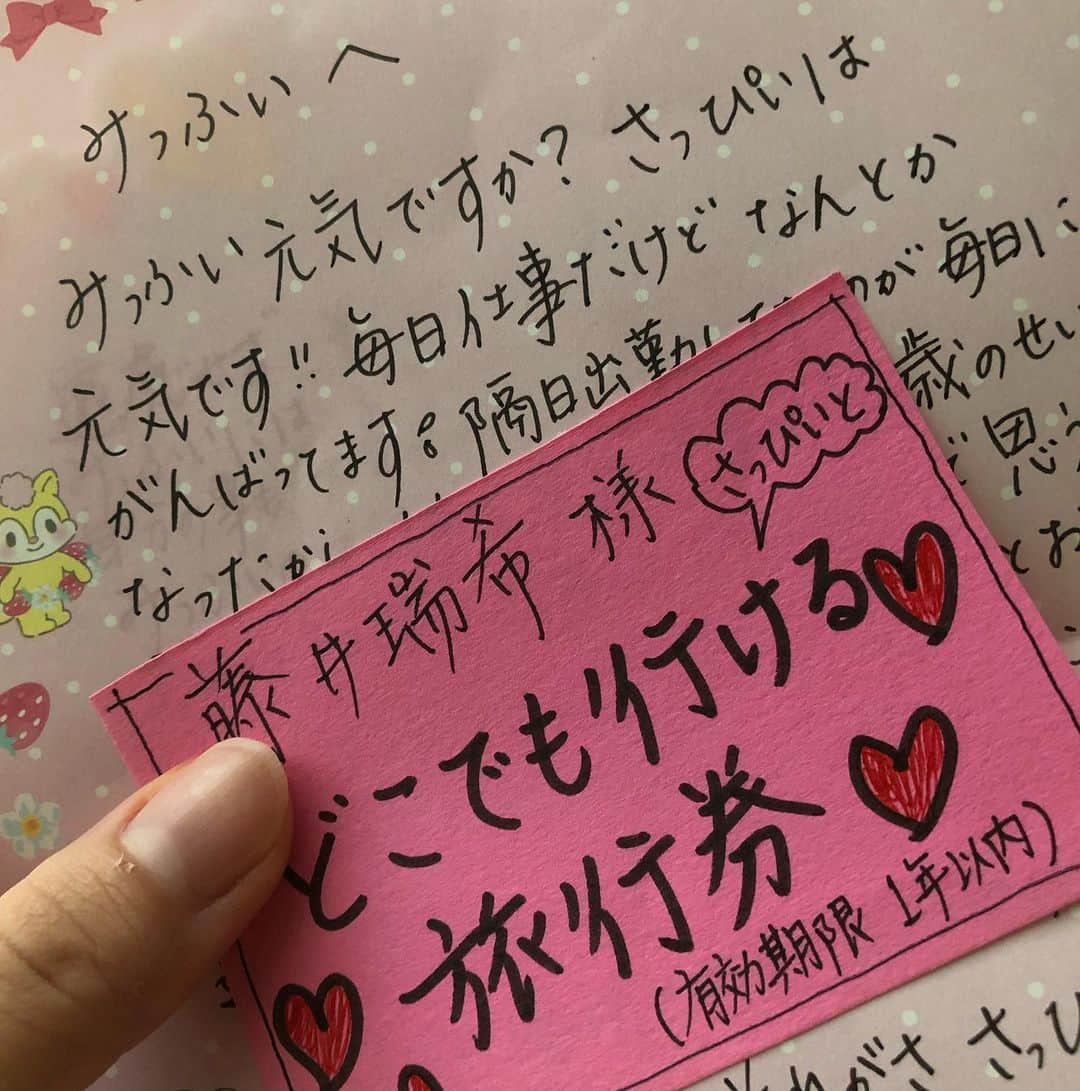 みっふぃへ
みっふい元気ですか？さっぴいは
元気です!!毎日仕事だけどなんとか
がんばってます。隔日出勤 が毎日に
なったから 歳のせい
思う
とお
藤井瑞希様
さっぴいと
どこでも行ける
旅行券
(有効期限 1年以内)
さっぴ